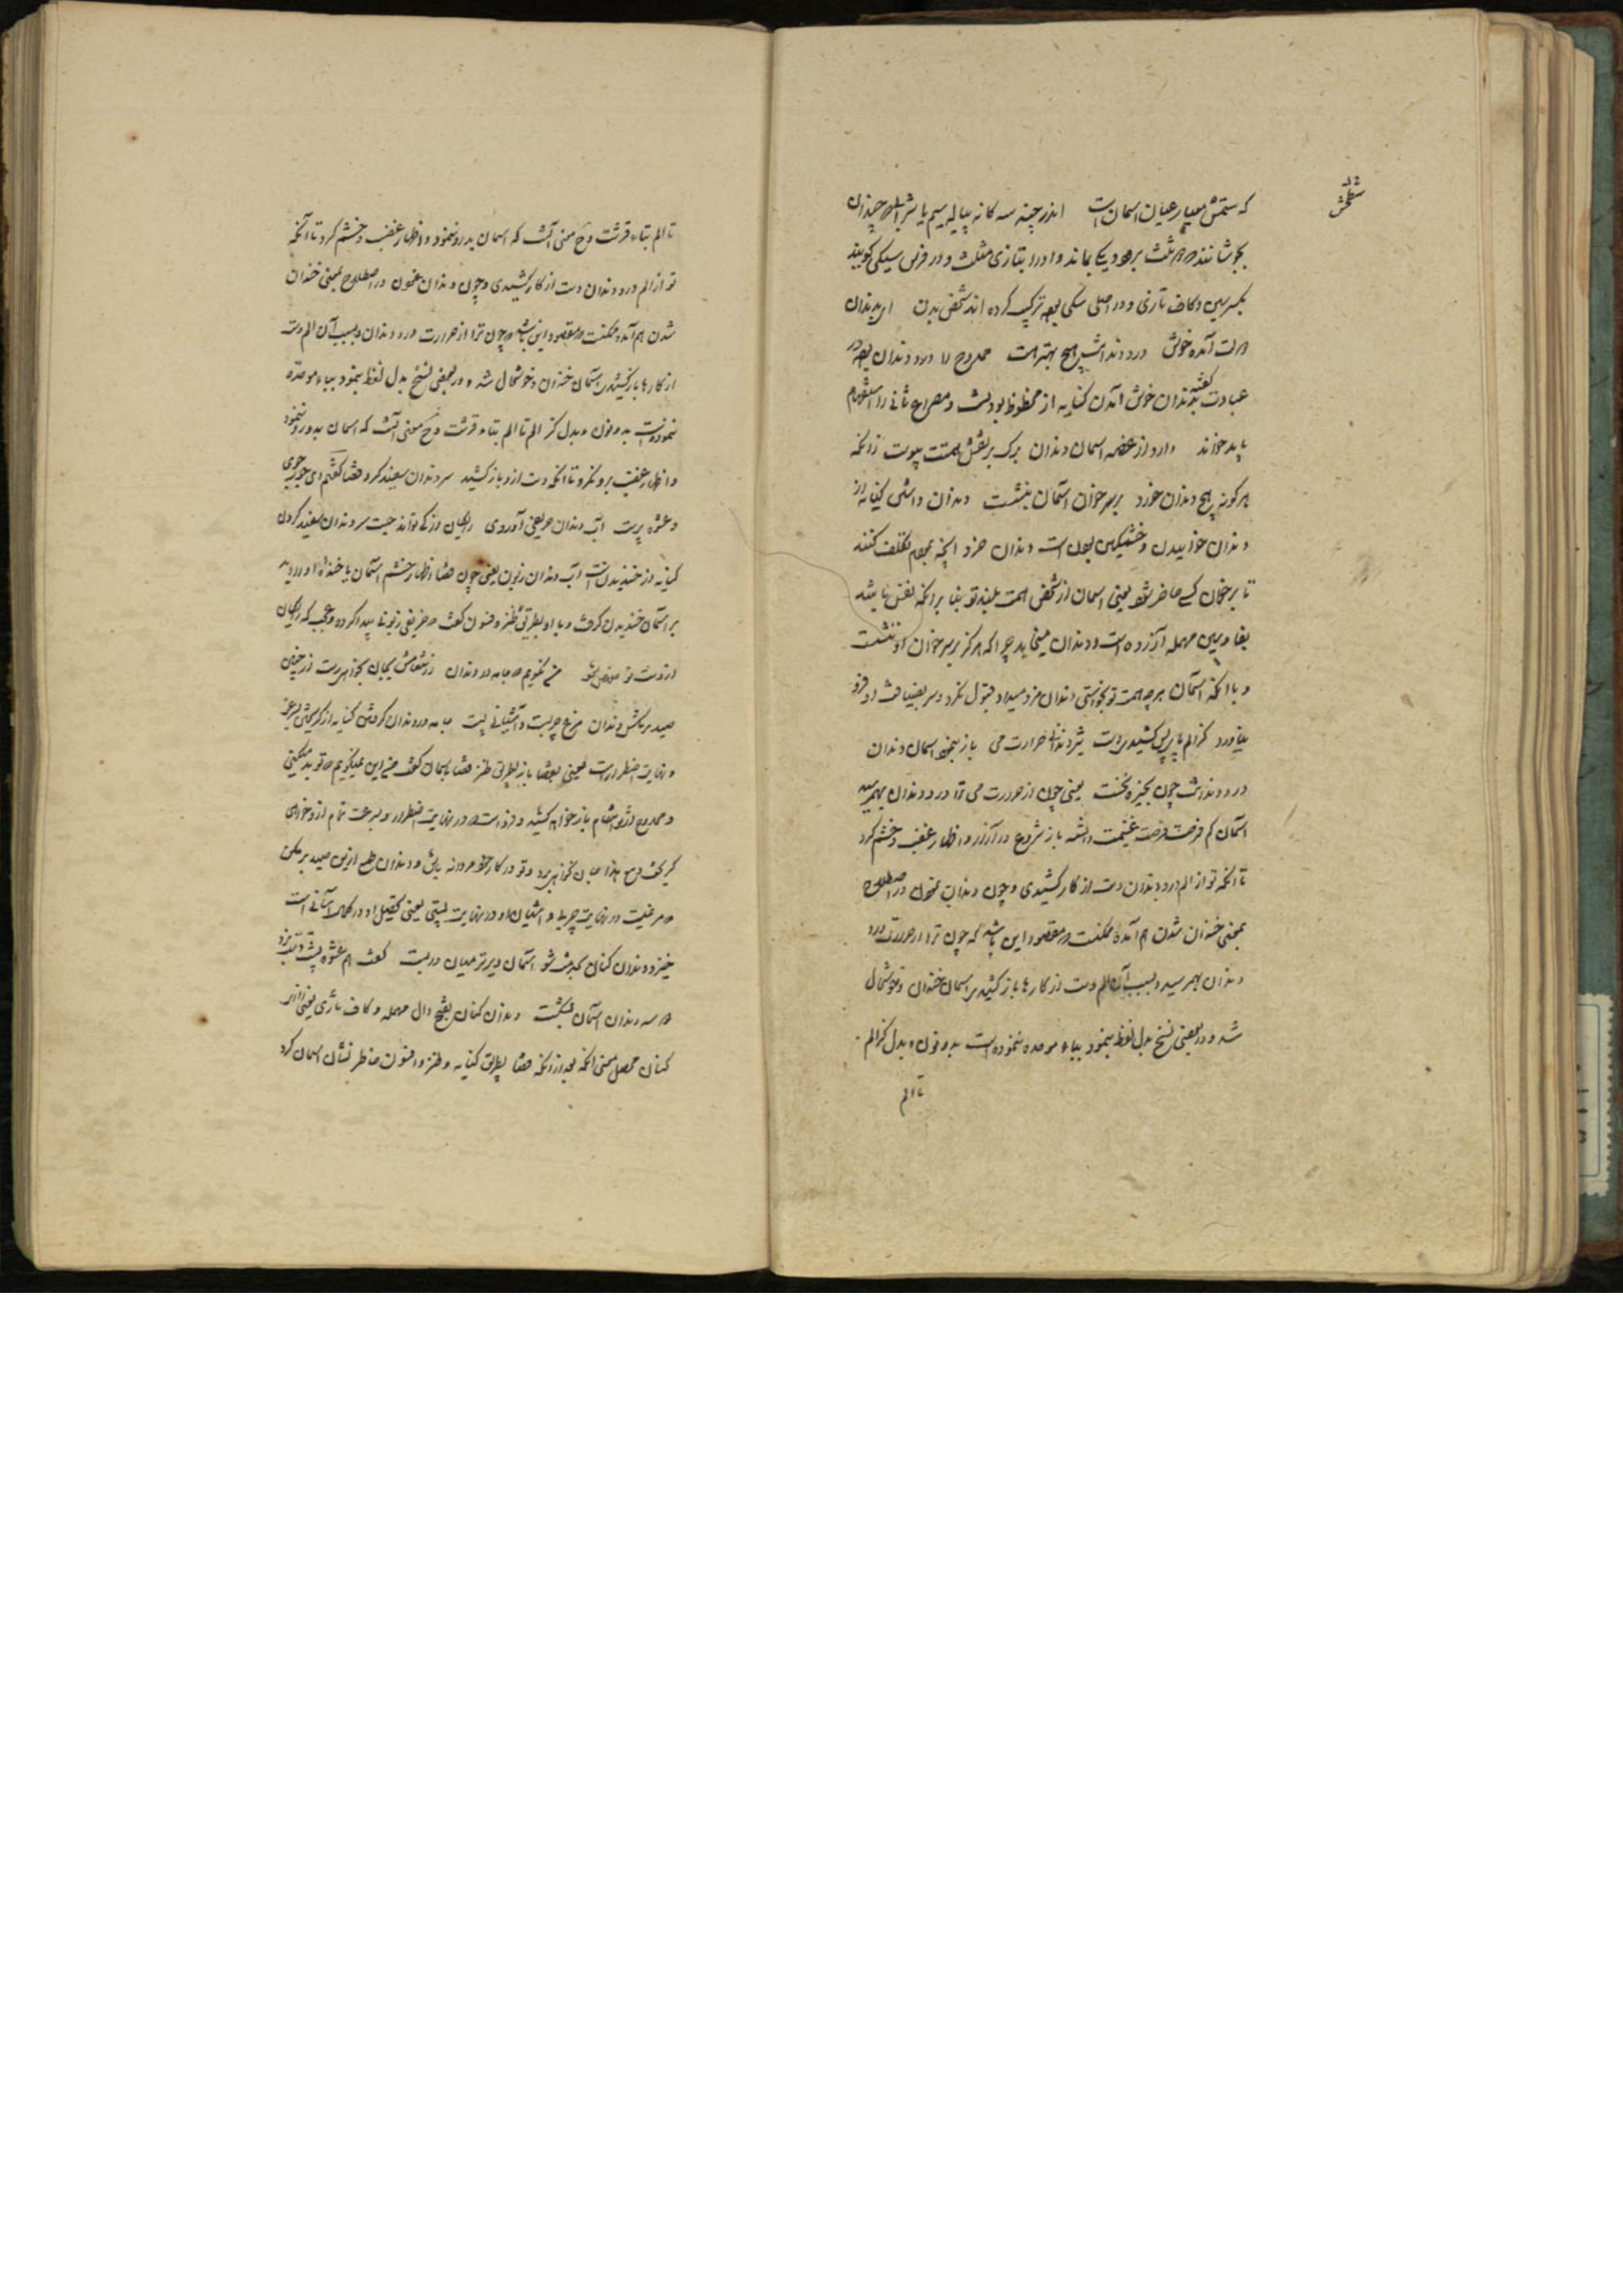 که ستمش معیار عیان اسمان است اندر چینه سه کانه پیاله سیم یا شرابی که چندان
بجوشانند که دو ثلث برود و یکی بماند و او را بتازی مثلث و در فرس سیکی گویند
بکسر سین و کاف تازی و در اصل سیکی بوده ترکیب کرده اند شخص بدن ای بدندان
آمده خوش درد دندانش هیچ بهتر هست ممدوح را درد دندان بوده در
عیادت گفته بدندان خوش آمدن کنایه از محظوظ بودنست و مصراع ثانی را استفهام
باید خواند دارد از غصه اسمان دندان برک بر نقش همتت پیوست زانکه
هرگونه هیچ دندان مزد بر سر خوان آسمان ننشست دندان داشتن کنایه از
دندان خواییدن و خشمگین بودن است دندان مزد آنچه بعوام تکلف کنند
تا بر خوان کسی حاضر شود یعنی اسمان از همت بلند تو بنا بر آنکه
سین مهمله آزرده است و دندان میخاید چرا که هرگز بر سر خوان او ننشست
و با آنکه آسمان هر چه همت تو بخواستی دندان مزد میداد قبول نکرد و سر بضیافت او فرو
نیاورد کز الم باز پس کشیدی دست حرارت می باز بنمود اسمان دندان
درد دندانت چون بخیزه نخست یعنی چون از حرارت می ترا درد دندان بهم رسید
آسمان کم فرصت فرصت غنیمت دانسته باز شروع در آزار و اظهار غضب و خشم کرد
تا آنکه تو از الم درد دندان دست از کار کشیدی و چون دندان نمودن در اصطلاح
بمعنی خندان شدن هم آمده ممکنست که مقصود این باشد که چون ترا از حرارت درد
دندان بهم رسید و بسبب آن الم دست از کارها باز کشیدی اسمان خندان و خوشحال
شد و در بعضی نسخ بدل لفظ بنمود بباء موحده ننموده است بدو نون و بدل کز الم
تا الم
تا الم بتاء قرشت و ح معنی آنست که اسمان بدرو ننمود و اظهار غضب و خشم کرد تا آنکه
تو از الم درد دندان دست از کار کشیدی و چون دندان نمودن در اصطلاح بمعنی خندان
شدن هم آمده ممکنست که مقصود این باشد که چون ترا از حرارت درد دندان و بسبب آن الم دست
از کارها باز کشیدی آسمان خندان و خوشحال شد و در بعضی نسخ بدل لفظ بنمود بباء موحده
ننمودست بدو نون و بدل کز الم تا الم بتاء قرشت و ح معنی آنست که اسمان بدو رو ننمود
و اظهار غضب برو نکرد تا آنکه دست ازو باز کشید سر دندان سفید کرد قضا گفتم ای
و عشوه پرست آب دندان حریفی آوردی رایگان از تو کی تواند جست سر دندان سفید کردن
کنایه از خندیدنست آب دندان زبون یعنی چون قضا اظهار خشم آسمان
بر آسمان خندیدن گرفت و با او بطریق طنز و فسون گفت که حریفی زبونی پیدا کرده و عجب که رایگان
از دست تو من نگویم که جامه در دندان ز انتقامش بجان بخواهی رست از چنین
صید بر مکش دندان مرغ چربست و آشیانی پست جامه در دندان گرفتن کنایه از گریختن بسرعت
و نهایت اضطرار است یعنی بعد قضا باز بطریق طنز باسمان گفت من این نمیگویم که تو بد میکنی
و ممدوح از تو انتقام باز خواهد کشید و تو از دست او در نهایت اضطرار و سرعت تمام ازو خواهی
گریخت و مع هذا جان نخواهی برد و تو در کار خود مردانه باش و دندان طمع ازین صید بر مکن
که مرغیست در نهایت چربی و آشیان او در نهایت پستی یعنی تحصیل او در کمال آسانی است
خیز و دندان کنان بخدمت شو آسمان دیر تر میان دربست گفت هم عشوه
که سه دندان آسمان بشکست دندان کنان بفتح دال مهمله و کاف تازی یعنی
کنان محصل معنی آنکه بعد از آنکه قضا بطریق کنایه و طنز و افسون خاطر نشان اسمان کرد